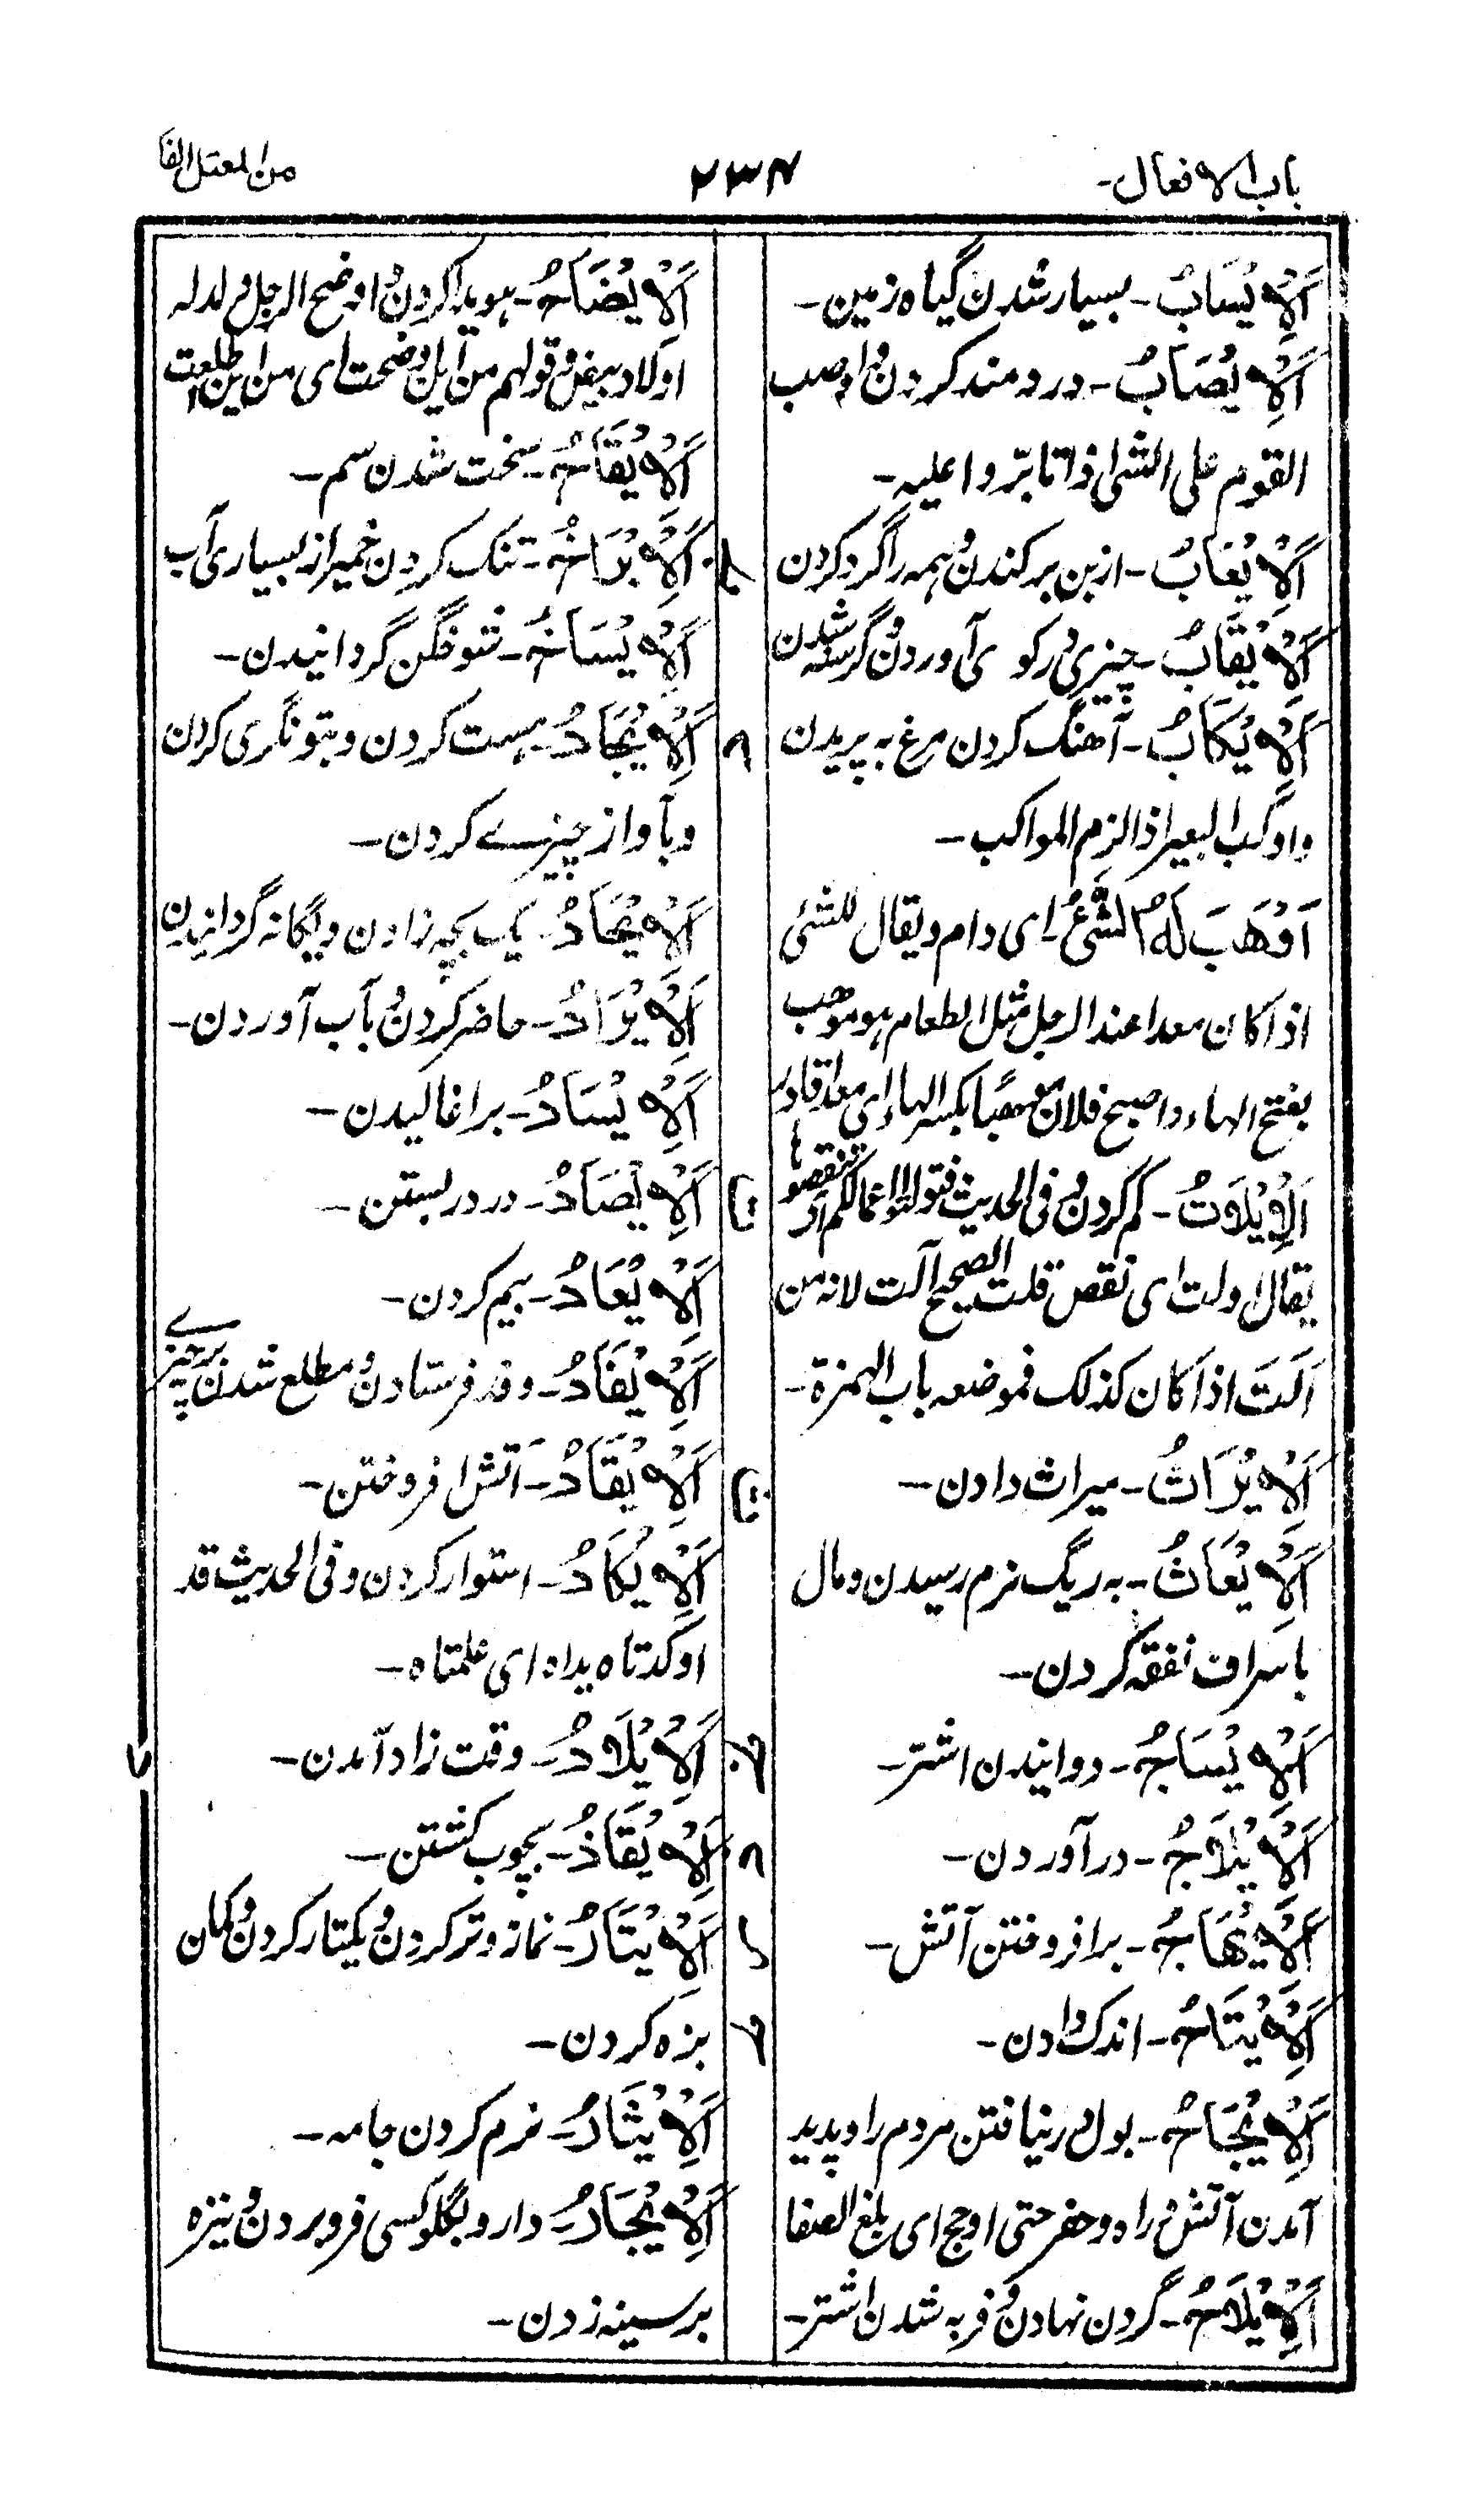 باب الافعال-
۲۳۴
من المعتل الفا
اَلْاِیْسَابُ- بسیار شدن گیاه زمین-
اَلْاِیْصَابُ- دردمند کردن و اوصب
القوم علی الشی اذا تابروا علیه-
اَلْاِیْعَابُ- از بن برکندن و همه را گرد کردن
اَلْاِیْقَابُ- چیزی در کوی آوردن و گرسنه شدن
اَلْاِیْکَابُ- آهنگ کردن مرغ به پریدن
واوکب البعیر اذا لزم المواکب-
اَوْهَبَ لَهُ الشَّیْءُ- ای دام و یقال للشئی
اذا کان معدا عند الرجل مثل الطعام هو موهب
بفتح الهاء و اصبح فلان موهبًا بکسر الهاء ای معدا قادرا
اَلْاِیْلَاتُ- کم کردن و فی الحدیث فتولتوا اعمالکم ای تنقصوها
یقال اولت ای نقص قلت الصحیح آلت لانه من
اَلَتَ اذا کان کذلک فموضعه باب الهمزة-
اَلْاِیْرَاثُ- میراث دادن-
اَلْاِیْعَاثُ- به ریگ نرم رسیدن و مال
باسراف نفقه کردن-
اَلْاِیْسَاجُ- دوانیدن اشتر-
اَلْاِیْلَاجُ- درآوردن-
اَلْاِیْهَاجُ- برافروختن آتش-
اَلْاِیْتَاحُ- اندک دادن-
اَلْاِیْجَاحُ- بول در نیافتن مردم را و پدید
آمدن آتش و راه و حفر حتی اوجح ای بلغ الصفا
اَلْاِیْلَاحُ- گردن نهادن و فربه شدن اشتر-
خ
د
ذ
ر
اَلْاِیْضَاحُ- هویدا کردن و اوضح الرجل ولد له
اولاد بیض و قولهم من این اوضحت ای من این طلعت
اَلْاِیْقَاحُ- سخت شدن سم-
اَلْاِیْرَاخُ- تنک کردن خمیر از بسیاری آب
اَلْاِیْسَاخُ- شوخگن گردانیدن-
اَلْاِیْجَادُ- هست کردن و بتونگری کردن
وبآواز چیزے کردن-
اَلْاِیْحَادُ- یک بچه زادن و یگانه گردانیدن
اَلْاِیْرَادُ- حاضر کردن و بآب آوردن-
اَلْاِیْسَادُ- براغالیدن-
اَلْاِیْصَادُ- در دربستن-
اَلْاِیْعَادُ- بیم کردن-
اَلْاِیْفَادُ- وفد فرستادن و مطلع شدن برچیزے
اَلْاِیْقَادُ- آتش افروختن-
اَلْاِیْکَادُ- استوار کردن و فی الحدیث قد
اوکدتاه یداه ای علمتاه-
اَلْاِیْلَادُ- وقت زاد آمدن-
اَلْاِیْقَاذُ- بچوب کشتن-
اَلْاِیْتَارُ- نماز وتر کردن و یکتا کردن و کمان
بزه کردن-
اَلْاِیْثَارُ- نرم کردن جامه-
اَلْاِیْجَارُ- دارو بگلو کسی فروبردن و نیزه
برسینه زدن-